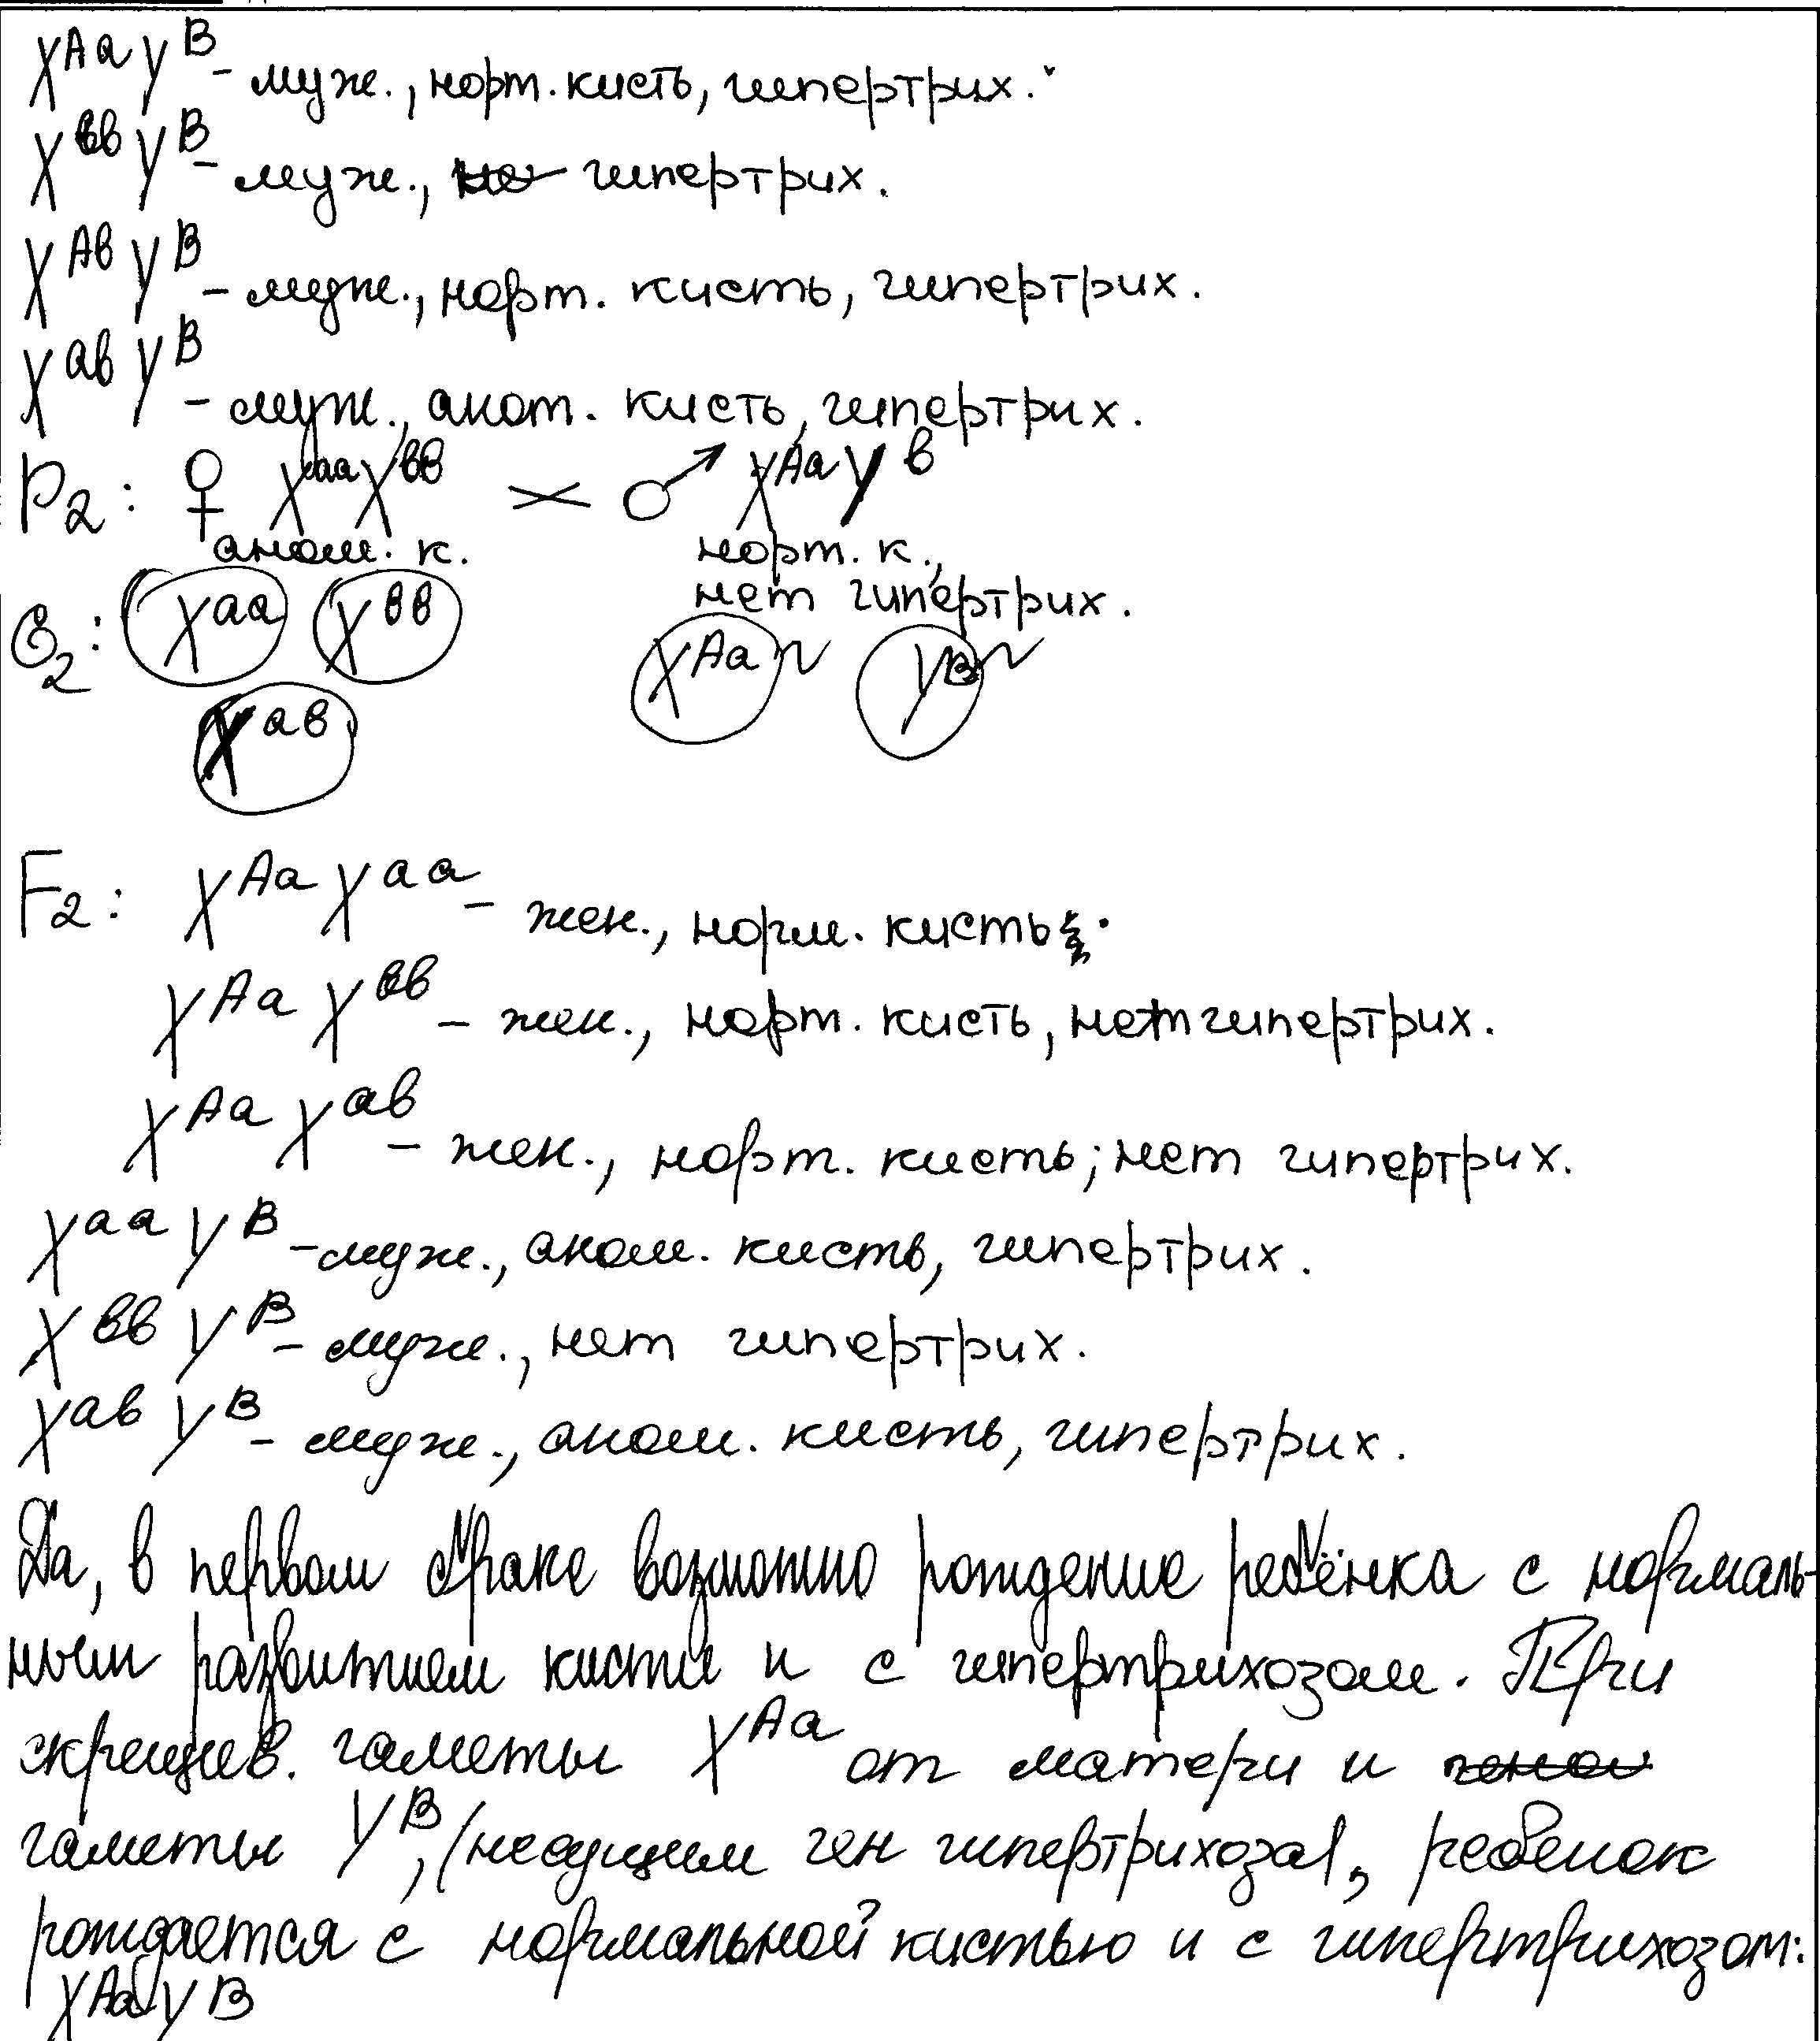 X^Aa Y^B - муж., норм. кисть, гипертрих.
X^вв Y^B - муж., гипертрих.
X^Aв Y^B - муж., норм. кисть, гипертрих.
X^aв Y^B - муж., аном. кисть, гипертрих.
P2: ♀ X^aa X^вв × ♂ X^Aa Y^в
аном. к. норм. к.,
нет гипертрих.
G2: X^aa X^вв X^Aa Y^B
X^aв
F2: X^Aa X^aa - жен., норм. кисть.
X^Aa X^вв - жен., норм. кисть, нет гипертрих.
X^Aa X^aв - жен., норм. кисть; нет гипертрих.
X^aa Y^B - муж., аном. кисть, гипертрих.
X^вв Y^B - муж., нет гипертрих.
X^aв Y^B - муж., аном. кисть, гипертрих.
Да, в первом браке возможно рождение ребёнка с нормаль-
ным развитием кисти и с гипертрихозом. При
скрещив. гаметы X^Aa от матери и
гаметы Y^B, (несущем ген гипертрихоза), ребенок
рождается с нормальной кистью и с гипертрихозом:
X^Aa Y^B